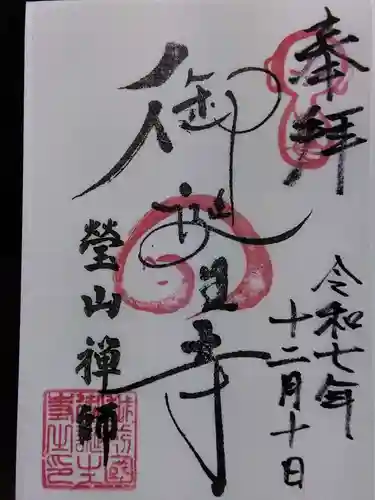 奉拝
令和七年
十二月十日
御誕生寺
瑩山禪師